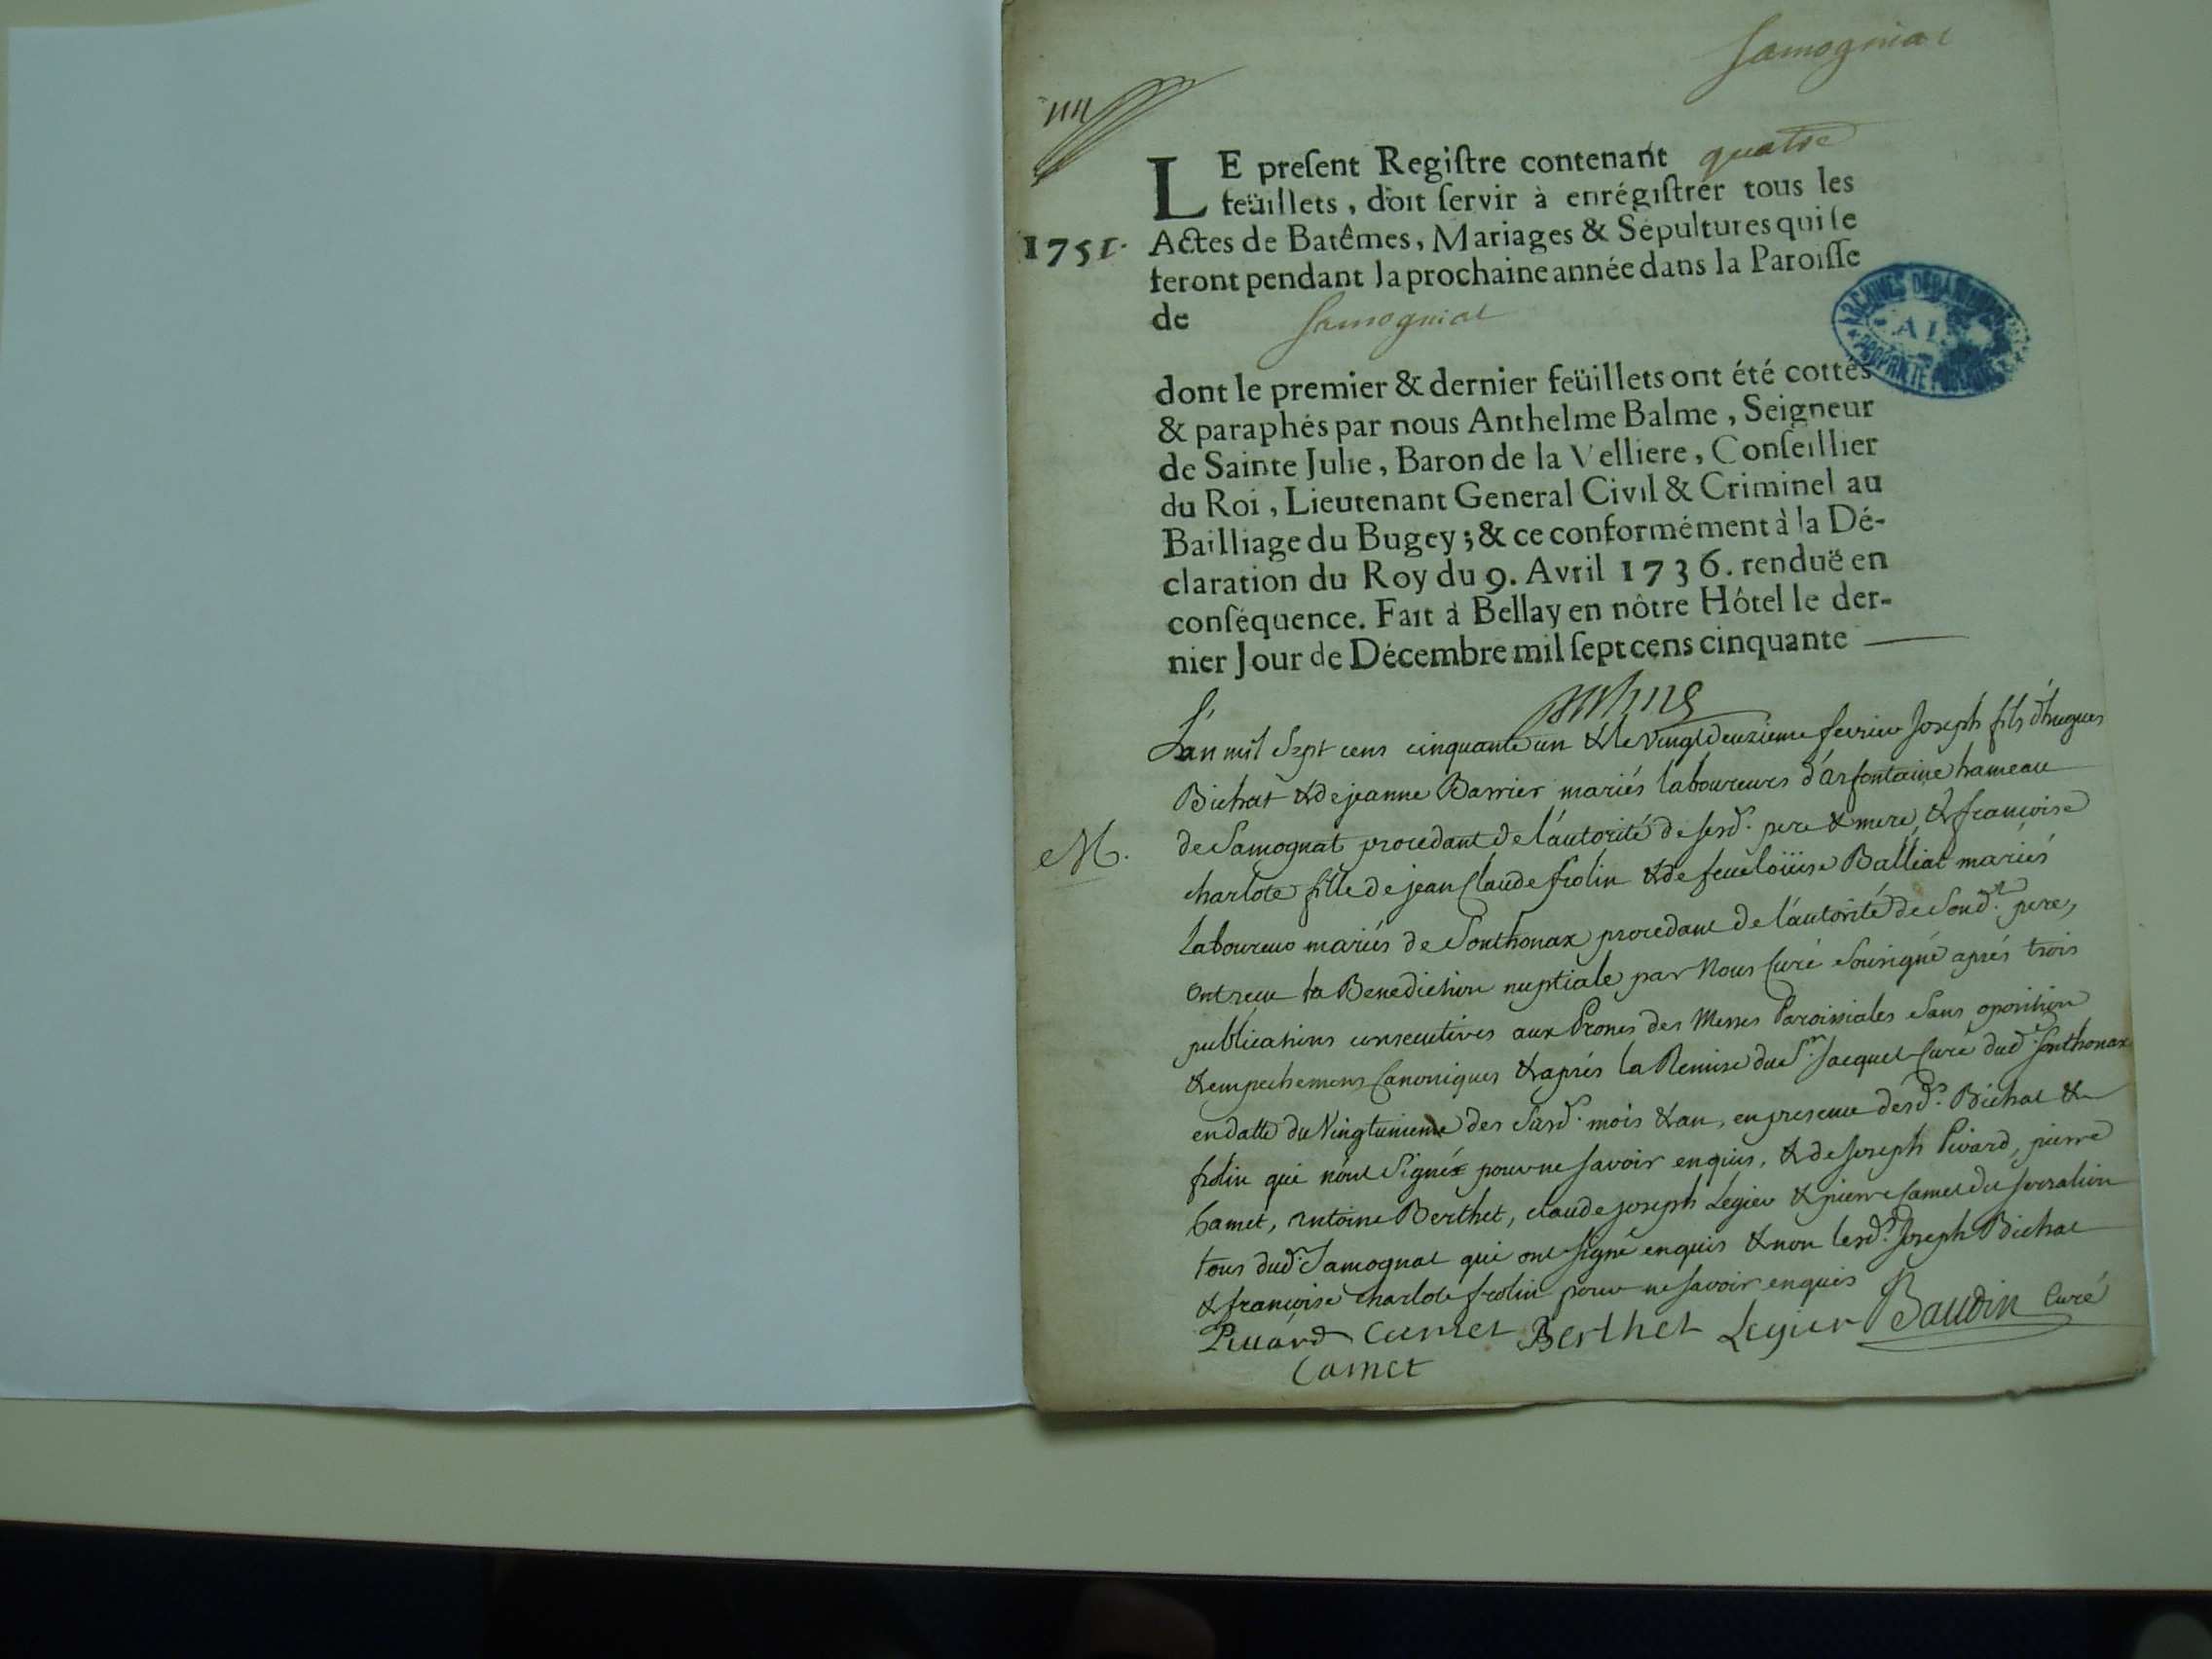 Samogniat
LE preſent Regiſtre contenant quatre
feüillets, doit ſervir à enrégiſtrer tous les
1751. Actes de Batêmes, Mariages & Sépultures qui ſe
feront pendant la prochaine année dans la Paroiſſe
de Samogniat
ARCHIVES DÉPARTEMENTALES AIN PROPRIÉTÉ PUBLIQUE
dont le premier & dernier feüillets ont été cottés
& paraphés par nous Anthelme Balme, Seigneur
de Sainte Julie, Baron de la Velliere, Conſeillier
du Roi, Lieutenant General Civil & Criminel au
Bailliage du Bugey; & ce conformément à la Dé-
claration du Roy du 9. Avril 1736. renduë en
conſéquence. Fait à Bellay en nôtre Hôtel le der-
nier Jour de Décembre mil ſept cens cinquante
L'an mil Sept cens cinquante un & le vingt deuzieme fevrier Joseph fils d'hugues
Bichat & de jeanne Barrier mariés laboureurs d'arfontaine hameau
M. de Samognat procedant de l'autorité de sesd. pere & mere, & françoise
charlote fille de jean Claude frolin & de feue loüise Balliat mariés
Laboureurs mariés de Sonthonax procedant de l'autorité de Sond. pere,
ont recu la Benediction nuptiale par Nous Curé Sousigné aprés trois
publications consecutives aux Prones des Messes Paroissiales Sans oposition
& empechemens Canoniques & aprés la Remise du Sr. Jacquet Curé dud. Sonthonax
en datte du Vingtunieme des Susd. mois & an, en presence desd. Bichat &
frolin qui n'ont Signés pour ne savoir enquis, & de Joseph Pivard, pierre
Camet, antoine Berthet, claude joseph Legier & pierre Camet du
tous dud. Samognat qui ont signé enquis & non lesd. Joseph Bichat
& françoise charlote frolin pour ne savoir enquis
Pivard Camet Berthet Legier Baudin Curé
Camet